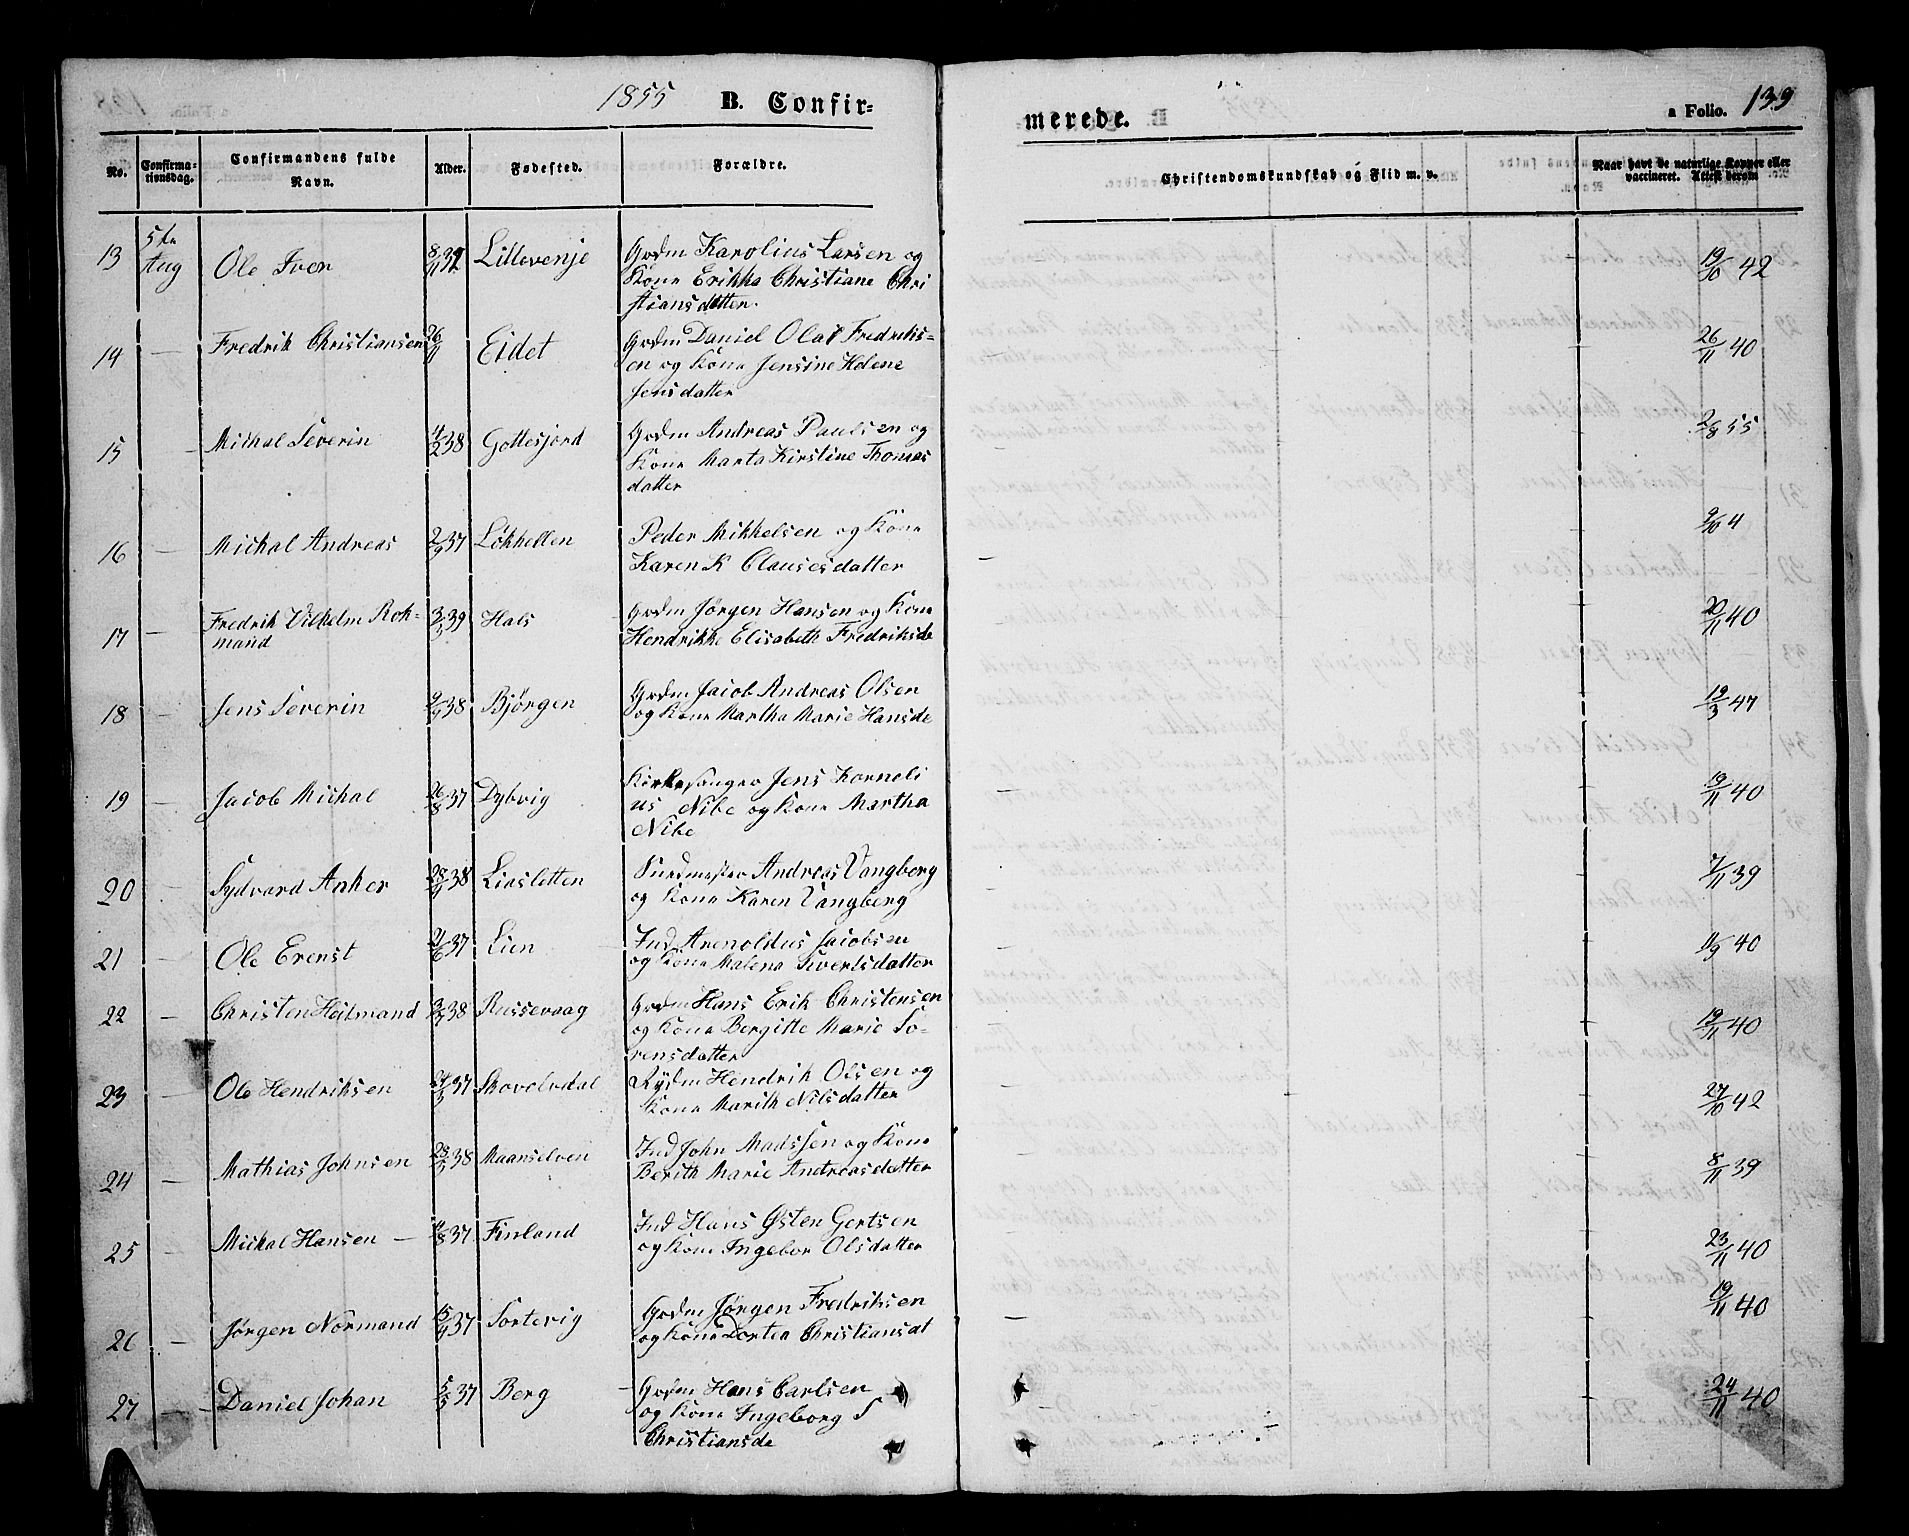 1855 B. Confir=
merede. a Folio. 139
No. Confirma-tionsdag. Confirmandens fulde Navn. Alder. Fødested. Forældre. Christendomskundskab og Flid m. v. Naar havt de naturlige Kopper eller vaccineret. Attest derom
13 5te Aug Ole Iver 8/11 39 Lillevenje Grdm Karolius Larsen og
Kone Erikka Christiane Chri
stiansdatter. 19/10 42
14 — Fredrik Christiansen Eidet Grdm Daniel Olai Fredriks=
en og Kone Jensine Helene
Jensdatter 26/11 40
15 Michal Severin 4/2 38 Gottesjord Grdm Andreas Paulsen og
Kone Marta Kirstine Thomas
datter 2/8 55
16 — Michal Andreas 2/9 37 Løkhellen Peder Mikkelsen og Kone
Karen K Clausesdatter 9/10 4
17 — Fredrik Vilhelm Rok-
mand 3/5 39 Hals Grdm Jørgen Hansen og Kone
Hendrikke Elisabeth Fredriksde 20/11 40
18 — Jens Severin 9/9 38 Bjørgen Grdm Jacob Andreas Olsen
og Kone Martha Marie Hansde 19/3 47
19 — Jacob Michal 26/8 37 Dybvig Kirkesanger Jens Korneli
us Nibe og Kone Martha
Nibe 19/11 40
20 — Sydvard Anker 28/9 38 Liasletten Andreas Vangberg
og Kone Karen Vangberg 7/11 39
21 — Ole Erenst 21/6 37 Lien Ind Arenoldus Jacobsen
og Kone Malena Sivertsdatter 11/9 40
22 — Christen Heitmand 3/7 38 Russevaag Grdm Hans Erik Christensen
og Kone Bergitte Marie So-
rensdatter 19/11 40
23 — Ole Hendriksen 24/5 37 Skovelvdal Rydm Hendrik Olsen og
Kone Marith Nilsdatter 27/10 42
24 — Mathias Johnsen 28/3 38 Maanselven Ind John Madssen og Kone
Berith Marie Andreasdatter 8/11 39
25 — Mickal Hansen — 11/8 37 Finland Ind Hans Østen Gertsen
og Kone Ingebor Olsdatter 23/11 40
26 — Jørgen Normand 15/9 37 Sortevig Grdm Jørgen Fredriksen
og Kone Dortea Christiansdt 19/11 40
27 — Daniel Johan 5/3 37 Berg Grdm Hans Carlsen
og Kone Ingeborg S
Christiansde 24/11 40